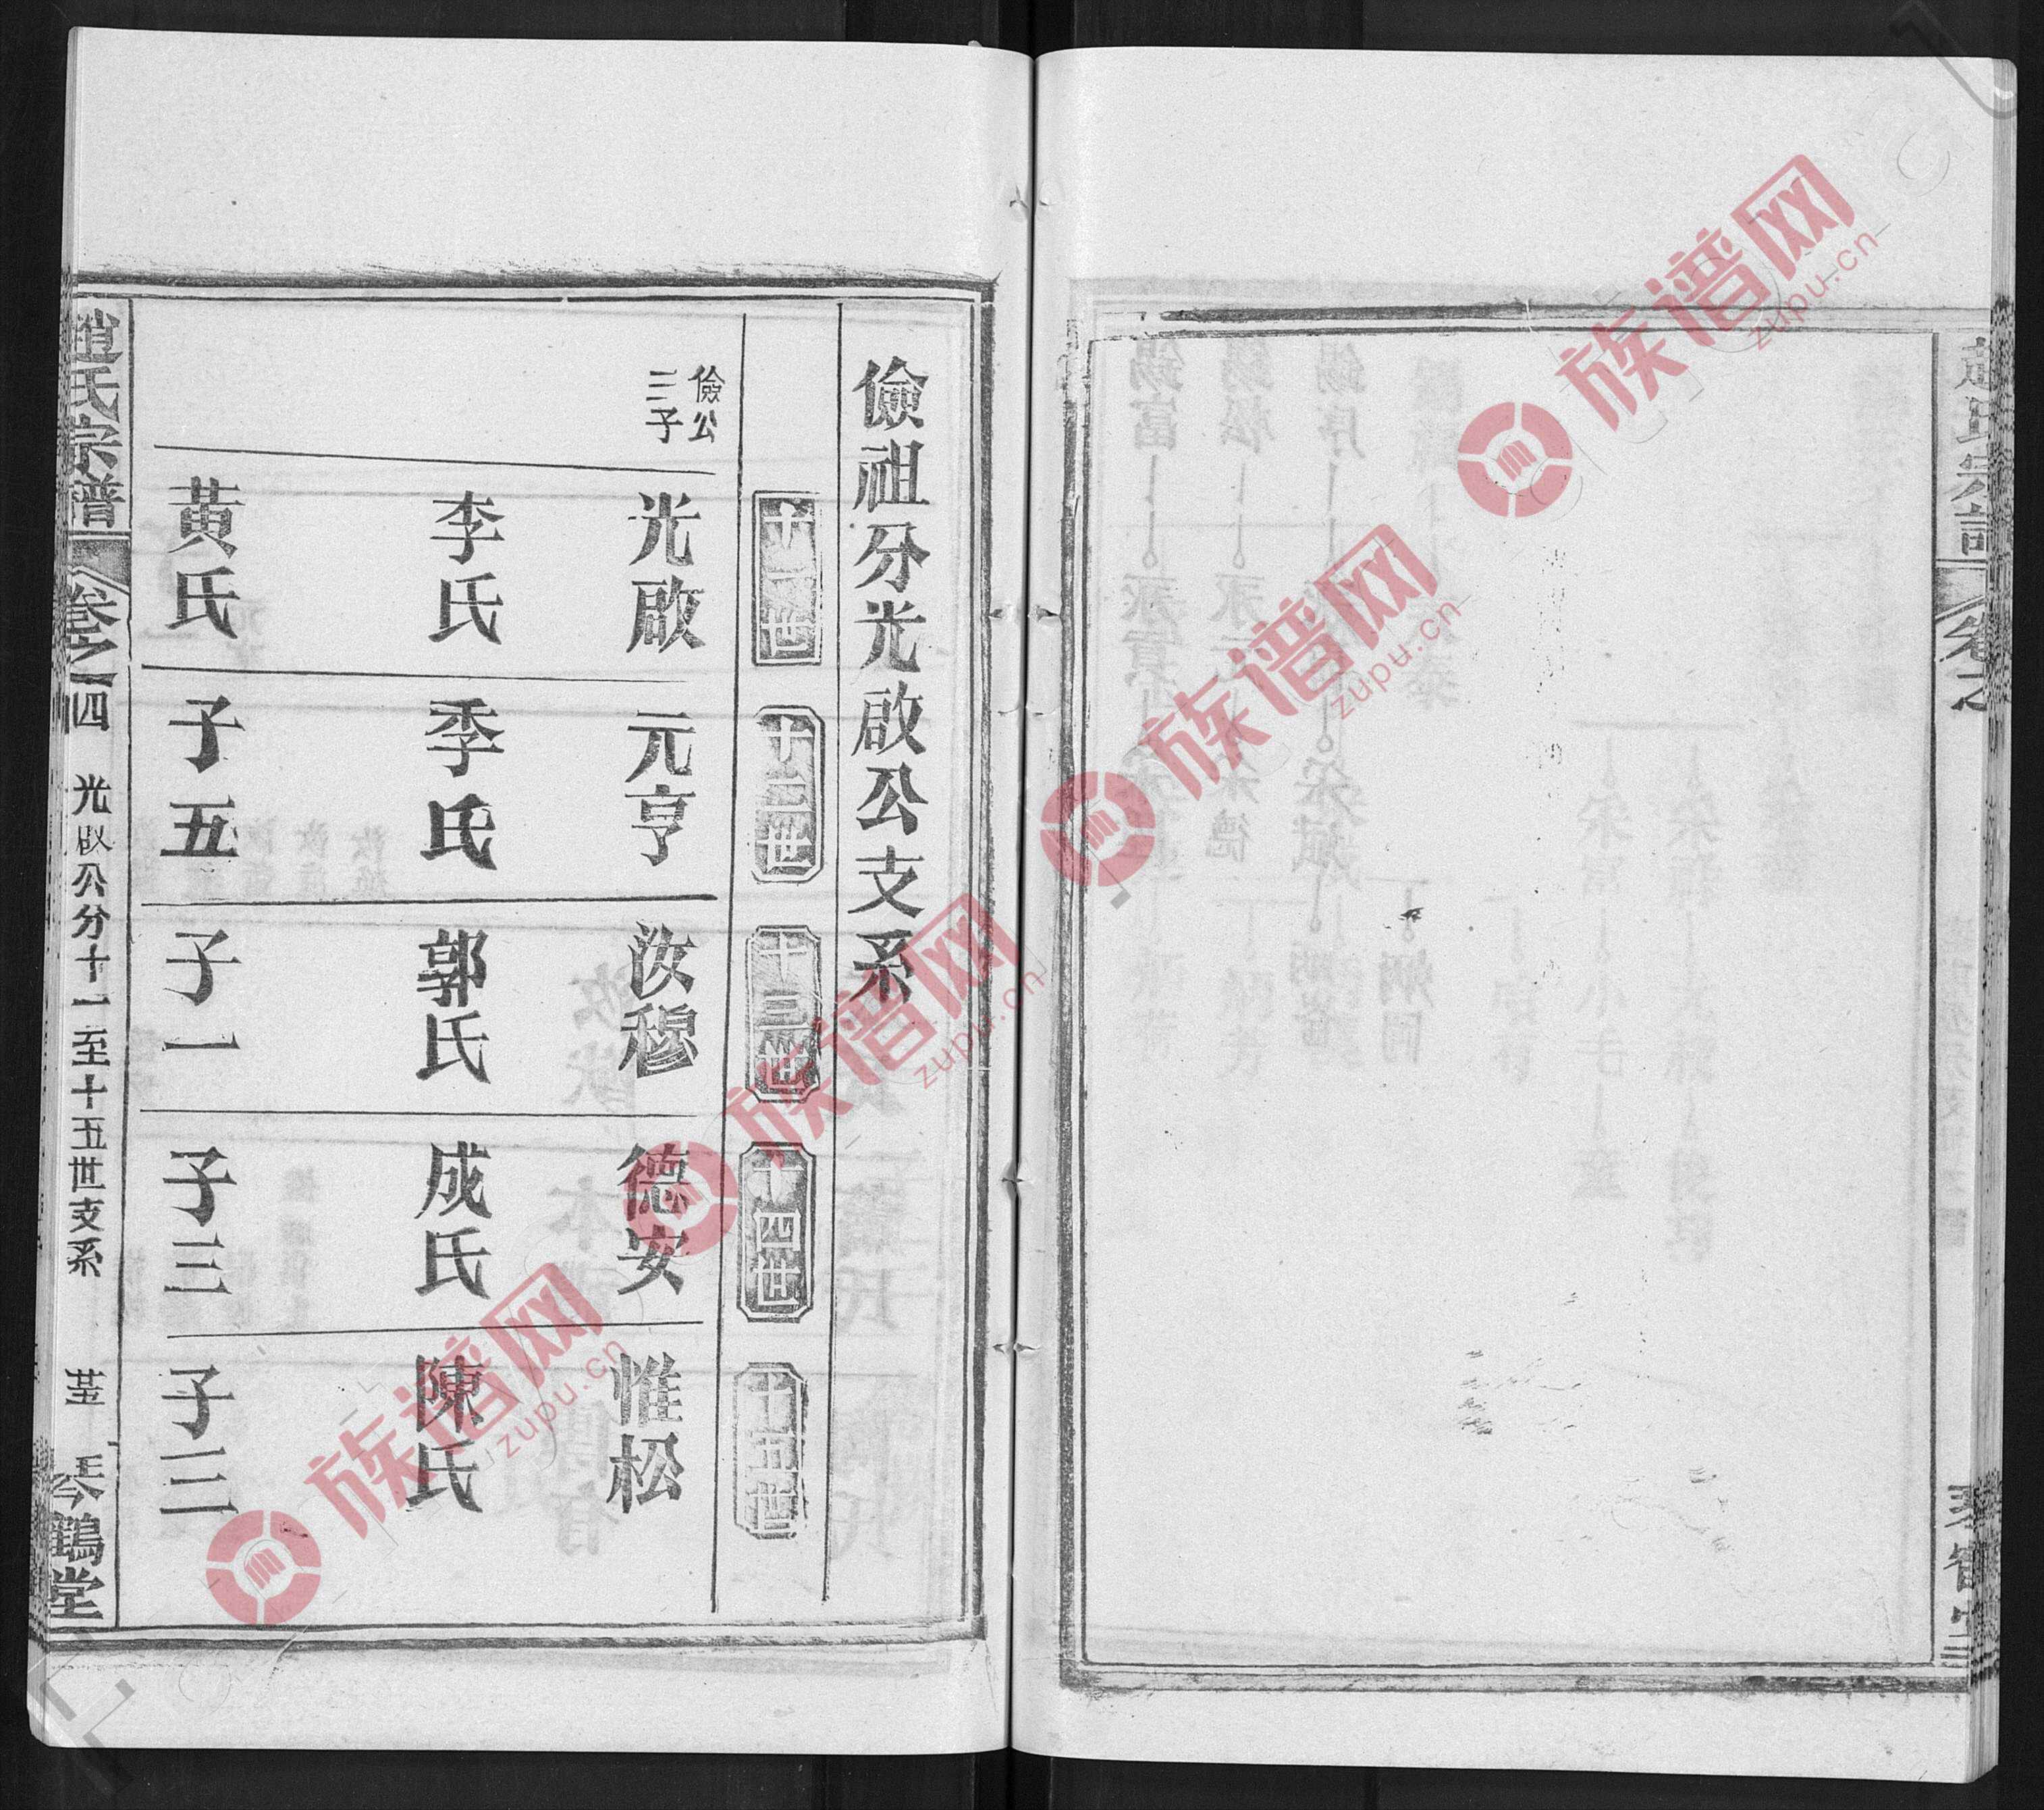 趙氏宗譜
卷之
儉祖分光啟公支系
十一世
十二世
十三世
十四世
十五世
儉公
三子
光啟
元亨
汝穆
德安
惟松
李氏
季氏
郭氏
成氏
陳氏
黃氏
子五
子一
子三
子三
趙氏宗譜
卷之四
光啟公分十一至十五世支系
琴鶴堂
族谱网
zupu.cn
族谱网
zupu.cn
族谱网
zupu.cn
族谱网
zupu.cn